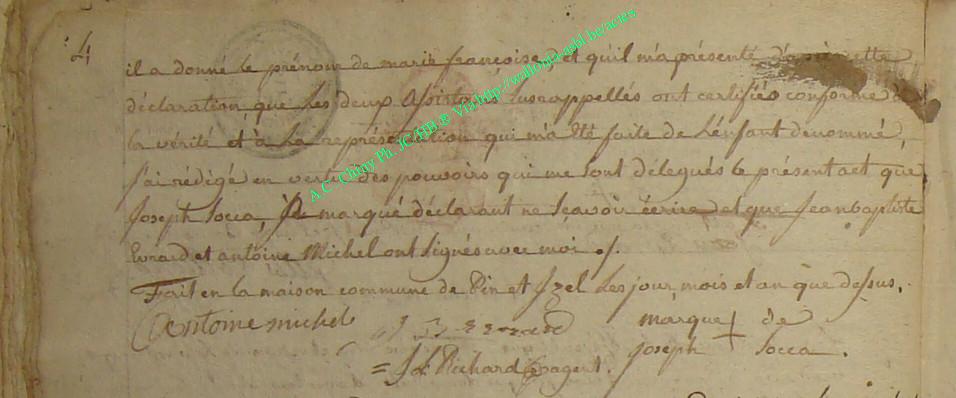 4
il a donné le prénom de marie françoise, et qu'il m'a présenté cette
déclaration que les deux assistans susappellés ont certifiés conforme
la vérité et à la représentation qui m'a été faite de L'enfant denommé,
j'ai rédigé en vertu des pouvoirs qui me sont délégués le présent act que
Joseph Socca, marqué déclarant ne sçavoir écrire et que Jeanbaptiste
Evrard et antoine Michel ont signés avec moi ./.
Fait en la maison commune de Pin et Izel Les jour, mois et an que dessus.
Antoine michel J B Evrard marque + de
joseph Socca.
= Richard agent.
A.C. Chiny Ph. JC/HB ® Via http://wallonia-asbl.be/actes